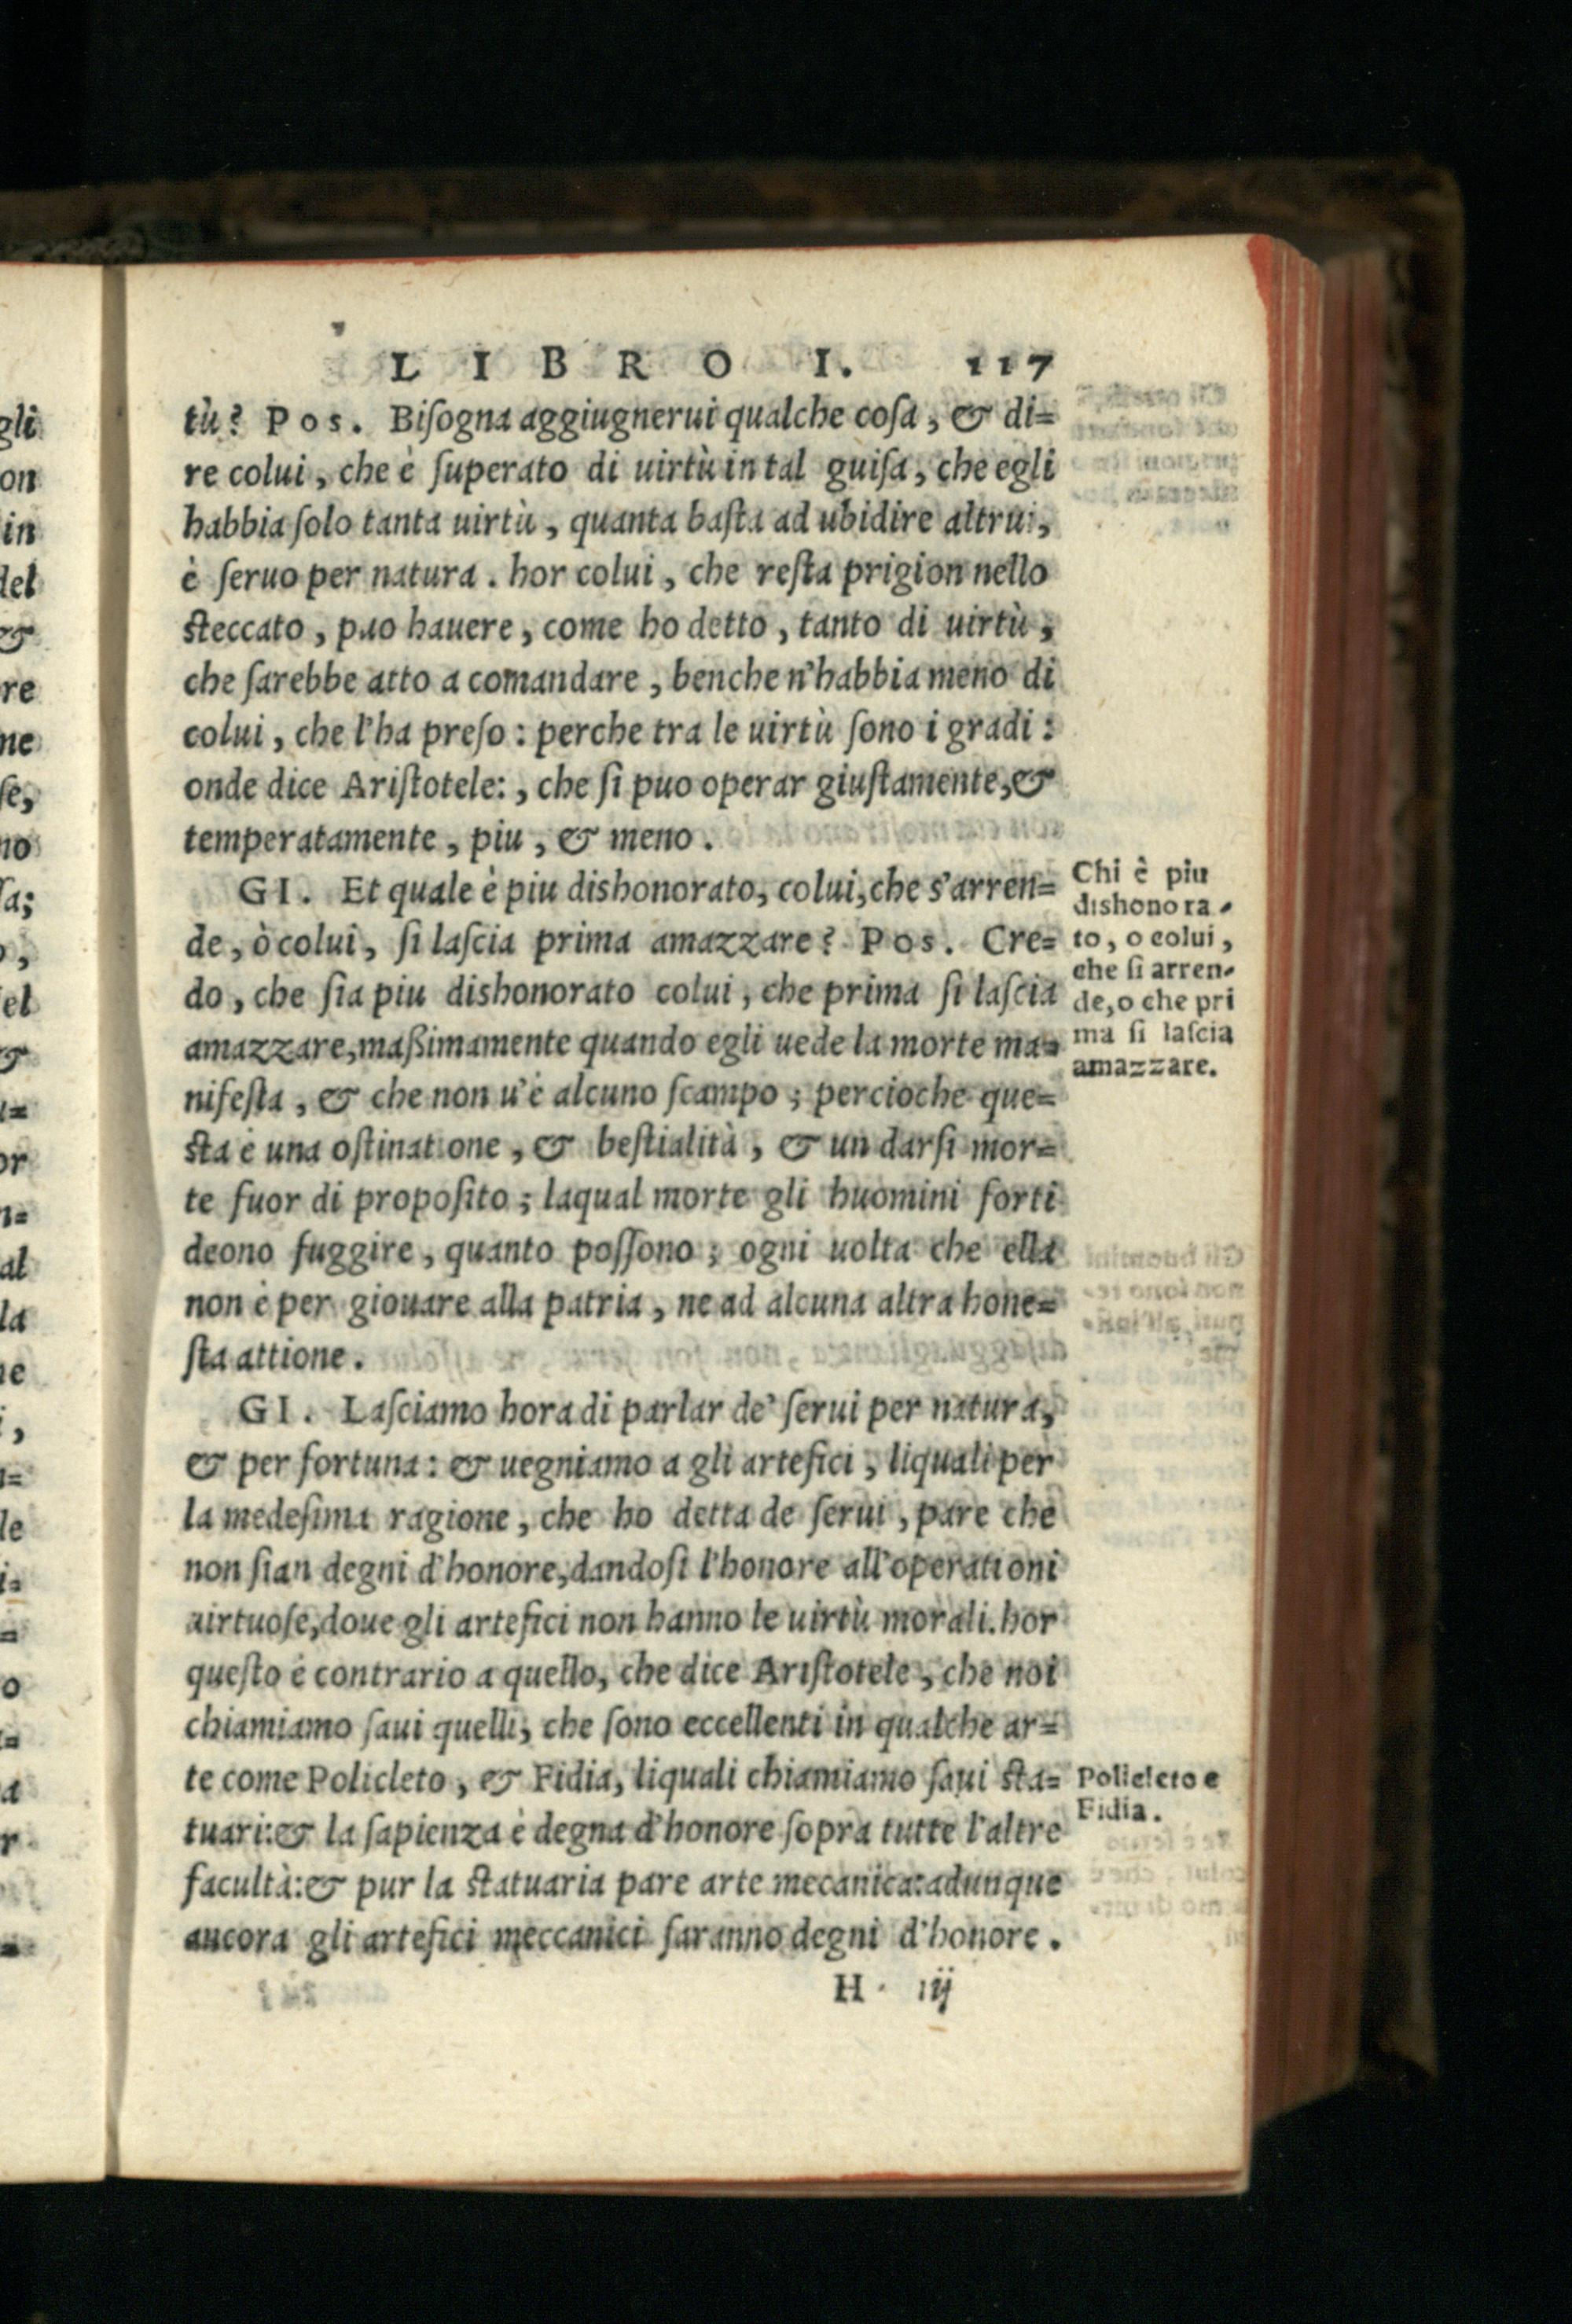 LIBRO I. 117
tù? Pos. Biſogna aggiugnerui qualche coſa, & di=
re colui, che è ſuperato di uirtù in tal guiſa, che egli
habbia ſolo tanta uirtù, quanta baſta ad ubidire altrui,
è ſeruo per natura. hor colui, che reſta prigion nello
ſteccato, puo hauere, come ho detto, tanto di uirtù,
che ſarebbe atto a comandare, benche n'habbia meno di
colui, che l'ha preſo: perche tra le uirtù ſono i gradi:
onde dice Ariſtotele:, che ſi puo operar giuſtamente, &
temperatamente, piu, & meno.
GI. Et quale è piu dishonorato, colui, che s'arren=
de, ò colui, ſi laſcia prima amazzare? Pos. Cre=
do, che ſia piu dishonorato colui, che prima ſi laſcia
amazzare, maßimamente quando egli uede la morte ma=
nifeſta, & che non u'è alcuno ſcampo; percioche que=
ſta è una oſtinatione, & beſtialità, & un darſi mor=
te fuor di propoſito; laqual morte gli huomini forti
deono fuggire, quanto poſſono; ogni uolta che ella
non è per giouare alla patria, ne ad alcuna altra hone=
ſta attione.
GI. Laſciamo hora di parlar de' ſerui per natura,
& per fortuna: & uegniamo a gli artefici, liquali per
la medeſima ragione, che ho detta de ſerui, pare che
non ſian degni d'honore, dandoſi l'honore all'operationi
uirtuoſe, doue gli artefici non hanno le uirtù morali. hor
queſto è contrario a quello, che dice Ariſtotele, che noi
chiamiamo ſaui quelli, che ſono eccellenti in qualche ar=
te come Policleto, & Fidia, liquali chiamiamo ſaui ſta=
tuari: & la ſapienza è degna d'honore ſopra tutte l'altre
facultà: & pur la ſtatuaria pare arte mecanica: adunque
ancora gli artefici meccanici ſaranno degni d'honore.
H iij
Chi è piu
dishonora-
to, o colui,
che ſi arren-
de, o che pri
ma ſi laſcia
amazzare.
Policleto e
Fidia.